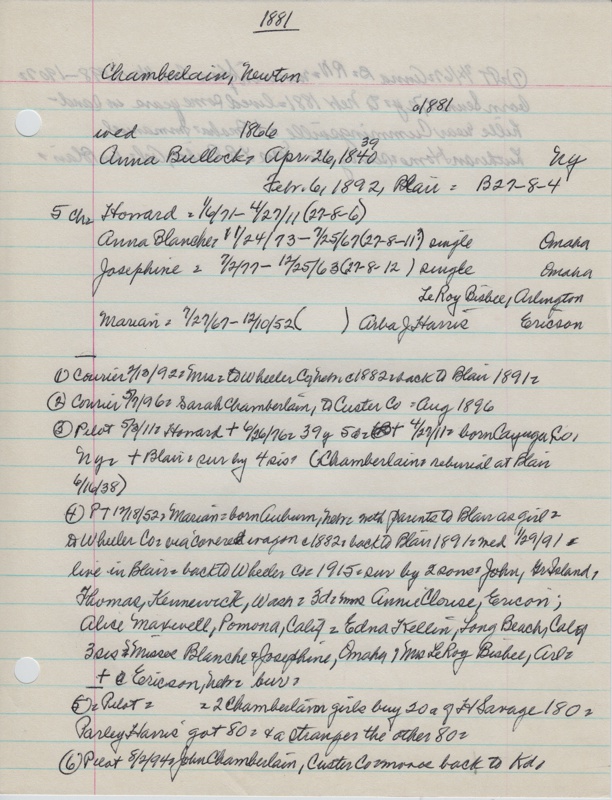 1881
Chamberlain, Newton
a1881
wed 1866 39
Anna Bullock, Apr. 26, 1840 NY
Febr. 6, 1892, Blair = B27-8-4
5 Ch = Howard = 1/6/71 - 4/27/11 (27-8-6)
Anna Blanche = 1/24/73 - 7/25/67 (27-8-11) single Omaha
Josephine = 7/2/77 - 12/25/63 (27-8-12) single Omaha
LeRoy Bisbee, Arlington
Marian = 7/27/67 - 12/10/52 ( ) Arba J Harris Ericson
① Courier 2/13/92 = Mrs = to Wheeler Co, Nebr. c1882 = back to Blair 1891 =
② Courier 5/7/96 = Sarah Chamberlain, to Custer Co = Aug 1896
③ Pilot 5/3/11 = Howard + 39y 4/27/11 = born Cayuga Co,
NY = + Blair = sur by 4 sis = (Chamberlain = reburial at Blair
6/16/38)
④ PT 12/18/52 = Marian = born Auburn, with parents to Blair as girl =
to Wheeler Co = via covered wagon c1882 = back to Blair 1891 = med 1/29/91 =
live in Blair = back to Wheeler Co = 1915 = sur by 2 sons = John, Gr Island,
Thomas, Kennewick, Wash = 3d = Mrs Annie Clouse, Ericson;
Alice Maxwell, Pomona, Calif = Edna Kellin, Long Beach, Calif
3 sis = Misses Blanche & Josephine, Omaha, Mrs LeRoy Bisbee, Arl =
+ @ Ericson, Nebr = bur =
5 = Pilot = = 2 Chamberlain girls buy 20a of H Savage 180 =
Parley Harris got 80 = & a stranger the other 80 =
⑥ Pilot 8/2/94 = John Chamberlain, Custer Co = move back to Kd,